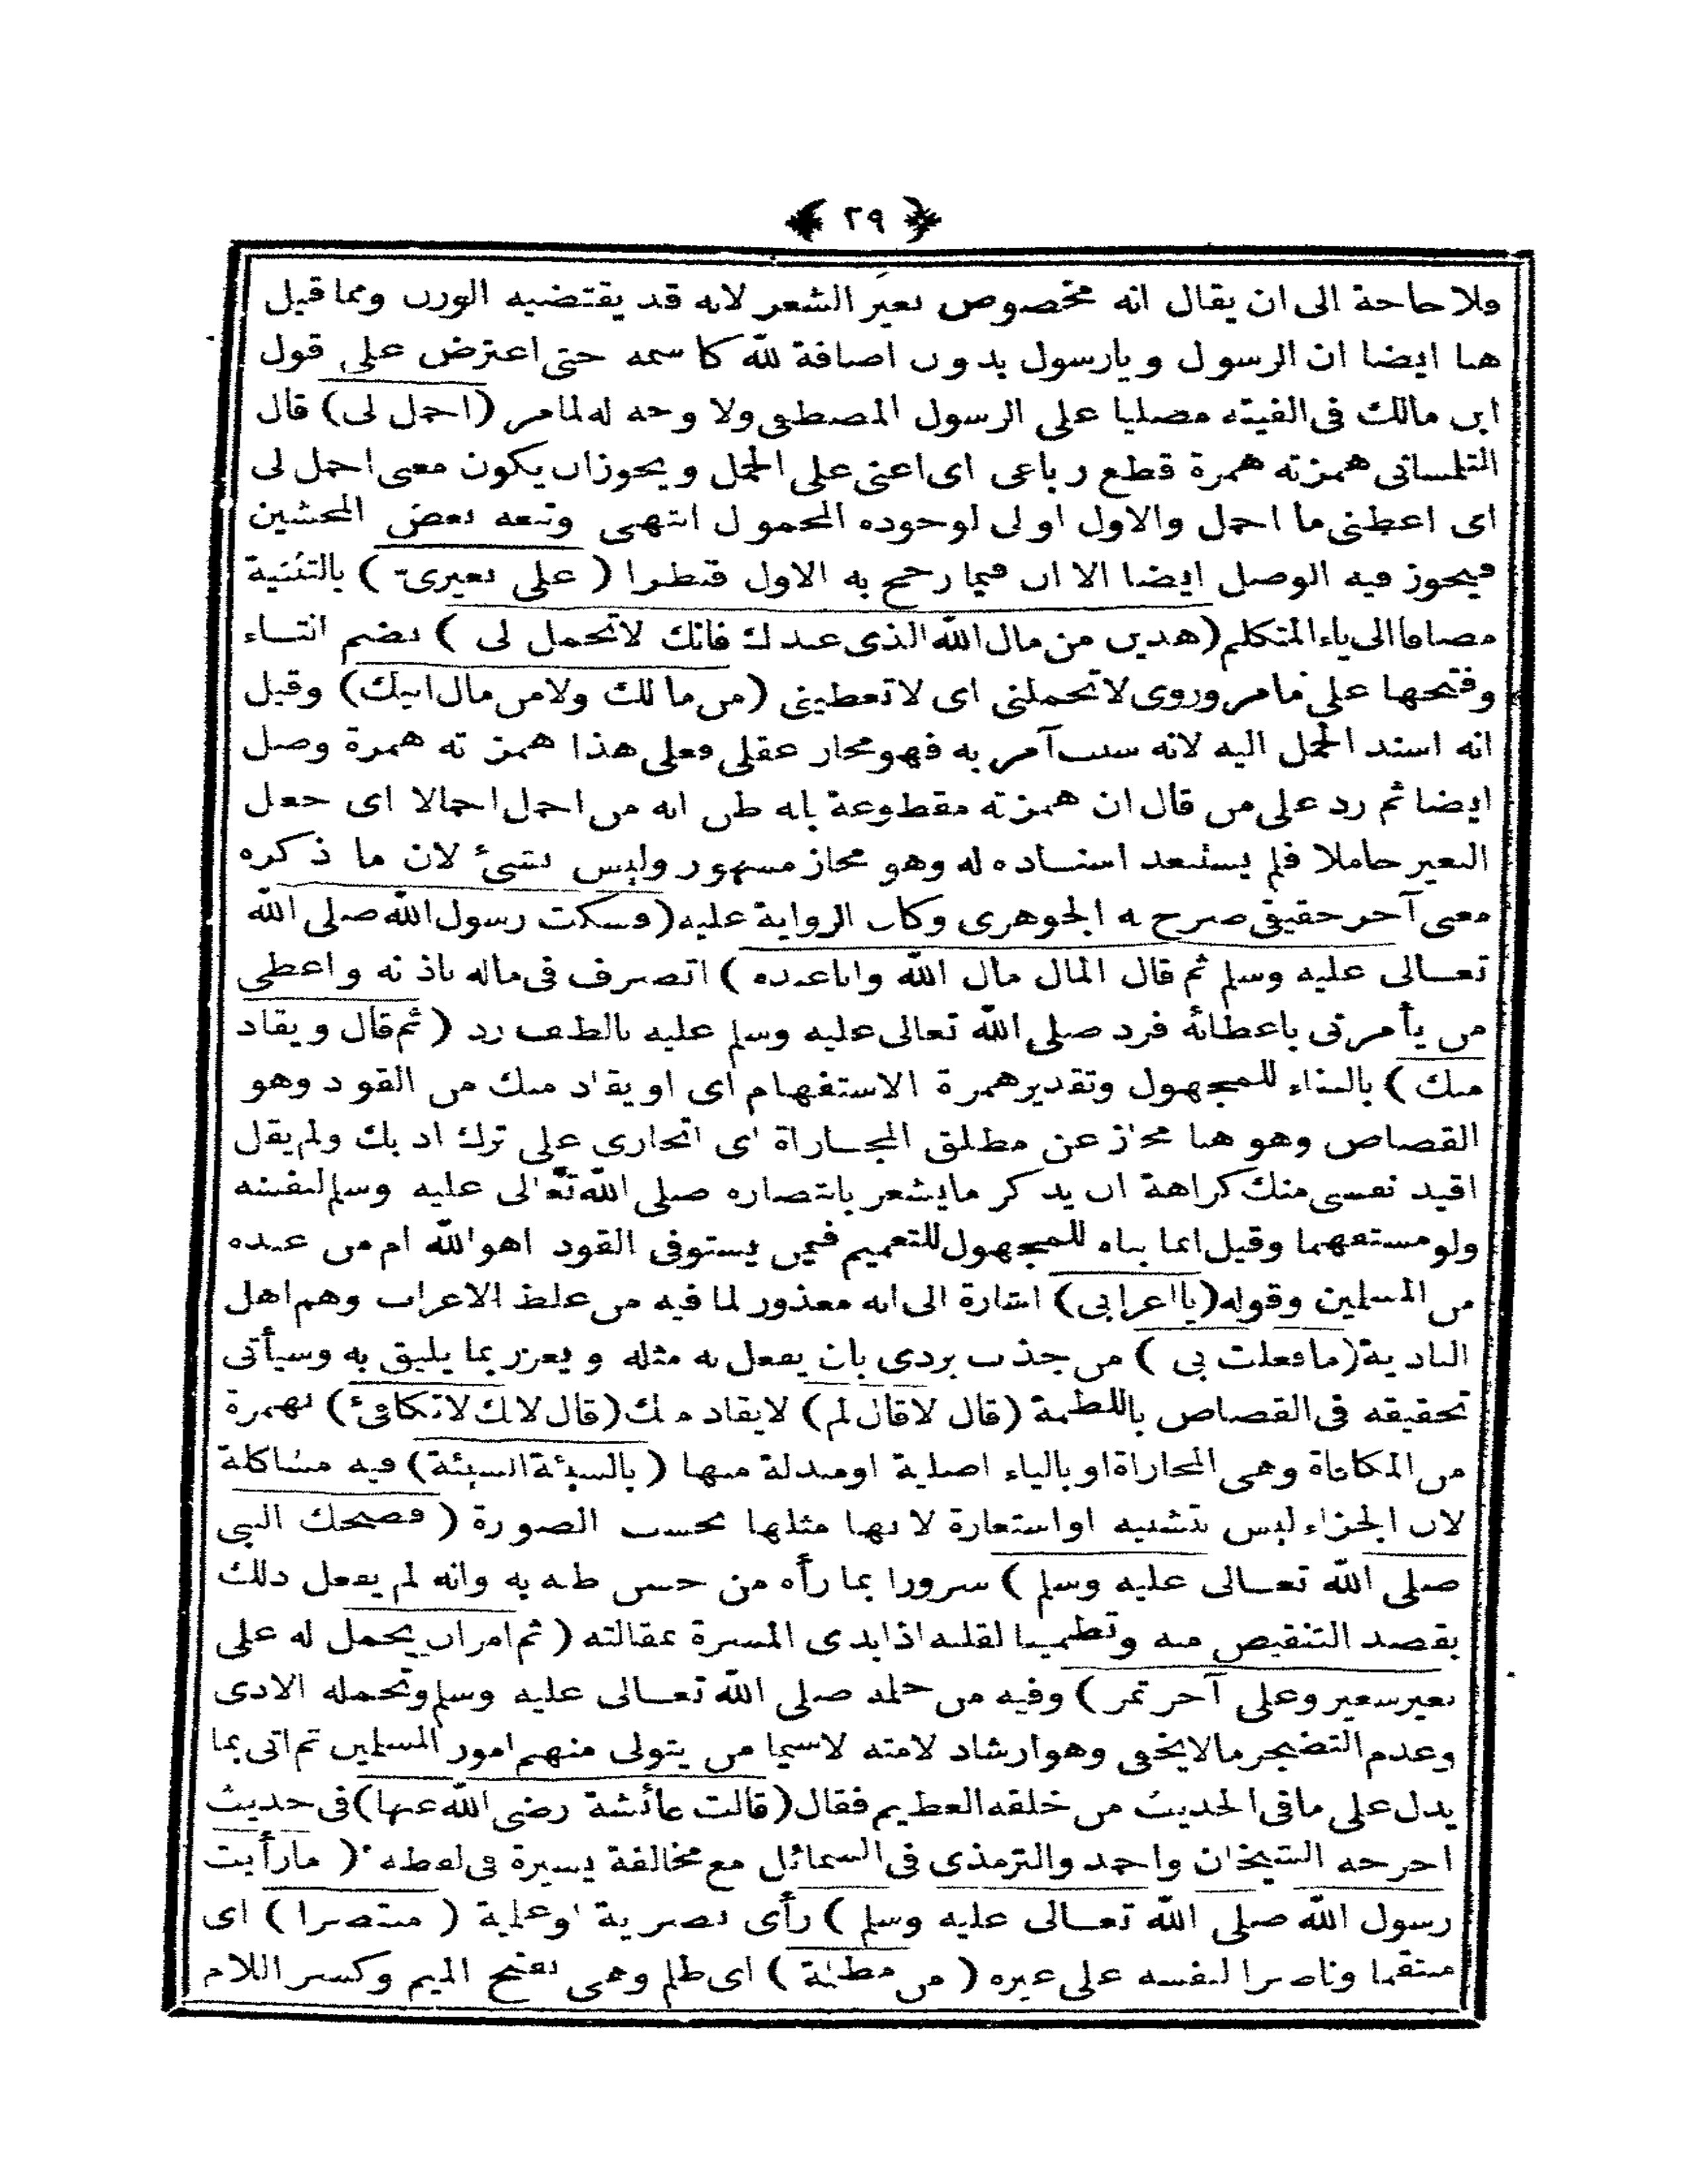 ﴿ ٢٩ ﴾
ولا حاجة الى ان يقال انه مخصوص بغير الشعر لانه قد يقتضيه الوزن ومما قيل
هنا ايضا ان الرسول ويارسول بدون اضافة لله كاسمه حتى اعترض على قول
ابن مالك فى الفيته مصليا على الرسول المصطفى ولا وجه له لمامر (احمل لى) قال
التلمسانى همزته همزة قطع رباعى اى اعنى على الحمل ويجوزان يكون معنى احمل لى
اى اعطنى ما احمل والاول اولى لوجوده المحمول انتهى وتبعه بعض المحشين
فيجوز فيه الوصل ايضا الا ان فيما رجح به الاول فنظرا (على بعيرى) بالتثنية
مضافا الى ياء المتكلم (هذين من مال الله الذى عندك فانك لا تحمل لى) بضم التاء
وفتحها على مامر وروى لا تحملنى اى لا تعطينى (من مالك ولا من مال ابيك) وقيل
انه اسند الحمل اليه لانه سبب آمر به فهو مجاز عقلى فعلى هذا همزته همزة وصل
ايضا ثم رد على من قال ان همزته مقطوعة بانه ظن انه من احمل احمالا اى جعل
البعير حاملا فلم يستبعد اسناده له وهو مجاز مشهور وليس بشئ لان ما ذكره
معنى آخر حقيقى صرح به الجوهرى وكان الرواية عليه (فسكت رسول الله صلى الله
تعالى عليه وسلم ثم قال المال مال الله وانا عبده) اتصرف فى ماله باذنه واعطى
من يأمرنى باعطائه فرد صلى الله تعالى عليه وسلم عليه بالطف رد (ثم قال ويقاد
منك) بالبناء للمجهول وتقدير همزة الاستفهام اى او يقاد منك من القود وهو
القصاص وهو هنا مجاز عن مطلق المجازاة اى اتجازى على ترك ادبك ولم يقل
اقيد نفسى منك كراهة ان يذكر مايشعر بانتصاره صلى الله تعالى عليه وسلم لنفسه
ولو مستفهما وقيل انما بناه للمجهول للتعميم فيمن يستوفى القود اهو الله ام من عبده
من المسلين وقوله (يا اعرابى) اشارة الى انه معذور لما فيه من غلظ الاعراب وهم اهل
البادية (مافعلت بى) من جذب بردى بان يفعل به مثله ويعزر بما يليق به وسيأتى
تحقيقه فى القصاص باللطمة (قال لا قال لم) لا يقاد منك (قال لانك لا تكافئ) بهمزة
من المكافاة وهى المجازاة او بالياء اصلية او مبدلة منها (بالسيئة السيئة) فيه مشاكلة
لان الجزاء ليس بتشبيه او استعارة لانها مثلها بحسب الصورة (فضحك النبى
صلى الله تعالى عليه وسلم) سرورا بما رأه من حسن ظنه به وانه لم يفعل ذلك
بقصد التنقيص منه وتطييبا لقلبه اذ ابدى المسرة بمقالته (ثم امر ان يحمل له على
بعير شعير وعلى آخر تمر) وفيه من حلمه صلى الله تعالى عليه وسلم وتحمله الاذى
وعدم التضجر مالايخفى وهو ارشاد لامته لاسيما من يتولى منهم امور المسلمين ثم اتى بما
يدل على مافى الحديث من خلقه العظيم فقال (قالت عائشة رضى الله عنها) فى حديث
اخرجه الشيخان واحمد والترمذى فى الشمائل مع مخالفة يسيرة فى لفظه (مارأيت
رسول الله صلى الله تعالى عليه وسلم) رأى بصرية او علمية (منتصرا) اى
منتقما وناصرا لنفسه على غيره (من مظلمة) اى ظلم وهى بفتح الميم وكسر اللام